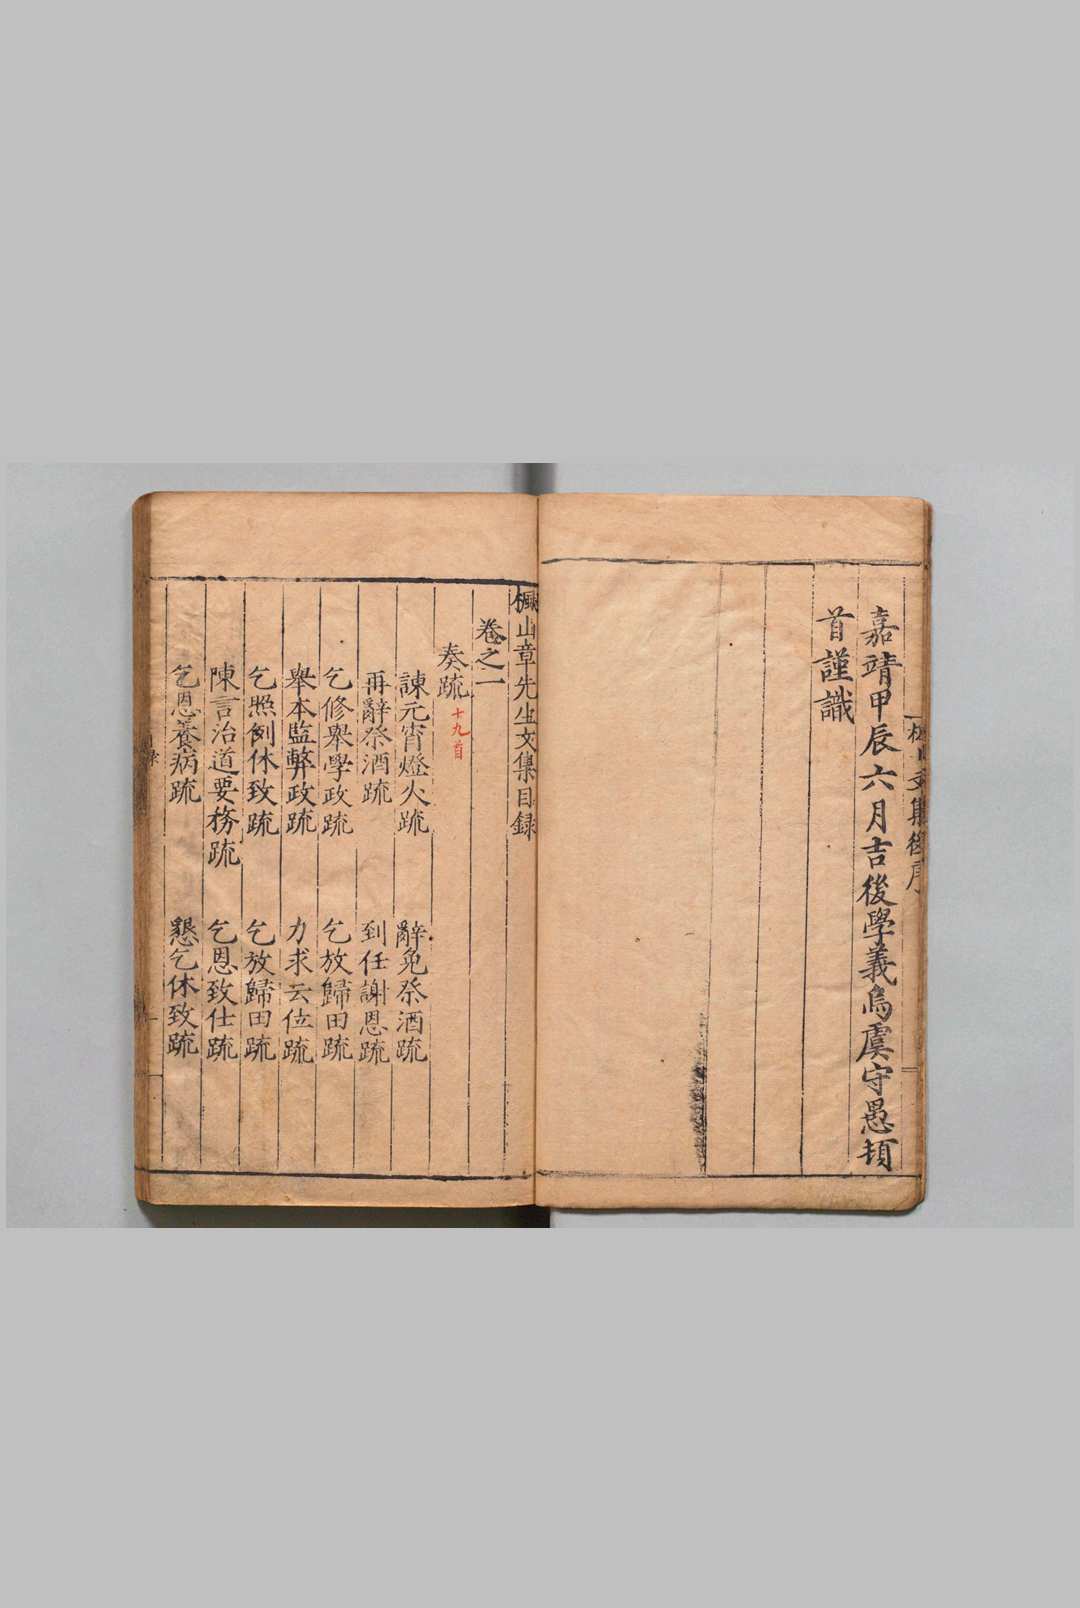 嘉靖甲辰六月吉後學義烏虞守愚頓
首謹識
楓山章先生文集目録
卷之一
奏疏 十九首
諫元宵燈火疏 辭免祭酒疏
再辭祭酒疏 到任謝恩疏
乞修舉學政疏 乞放歸田疏
舉本監弊政疏 力求去位疏
乞照例休致疏 乞放歸田疏
陳言治道要務疏 乞恩致仕疏
乞恩養病疏 懇乞休致疏